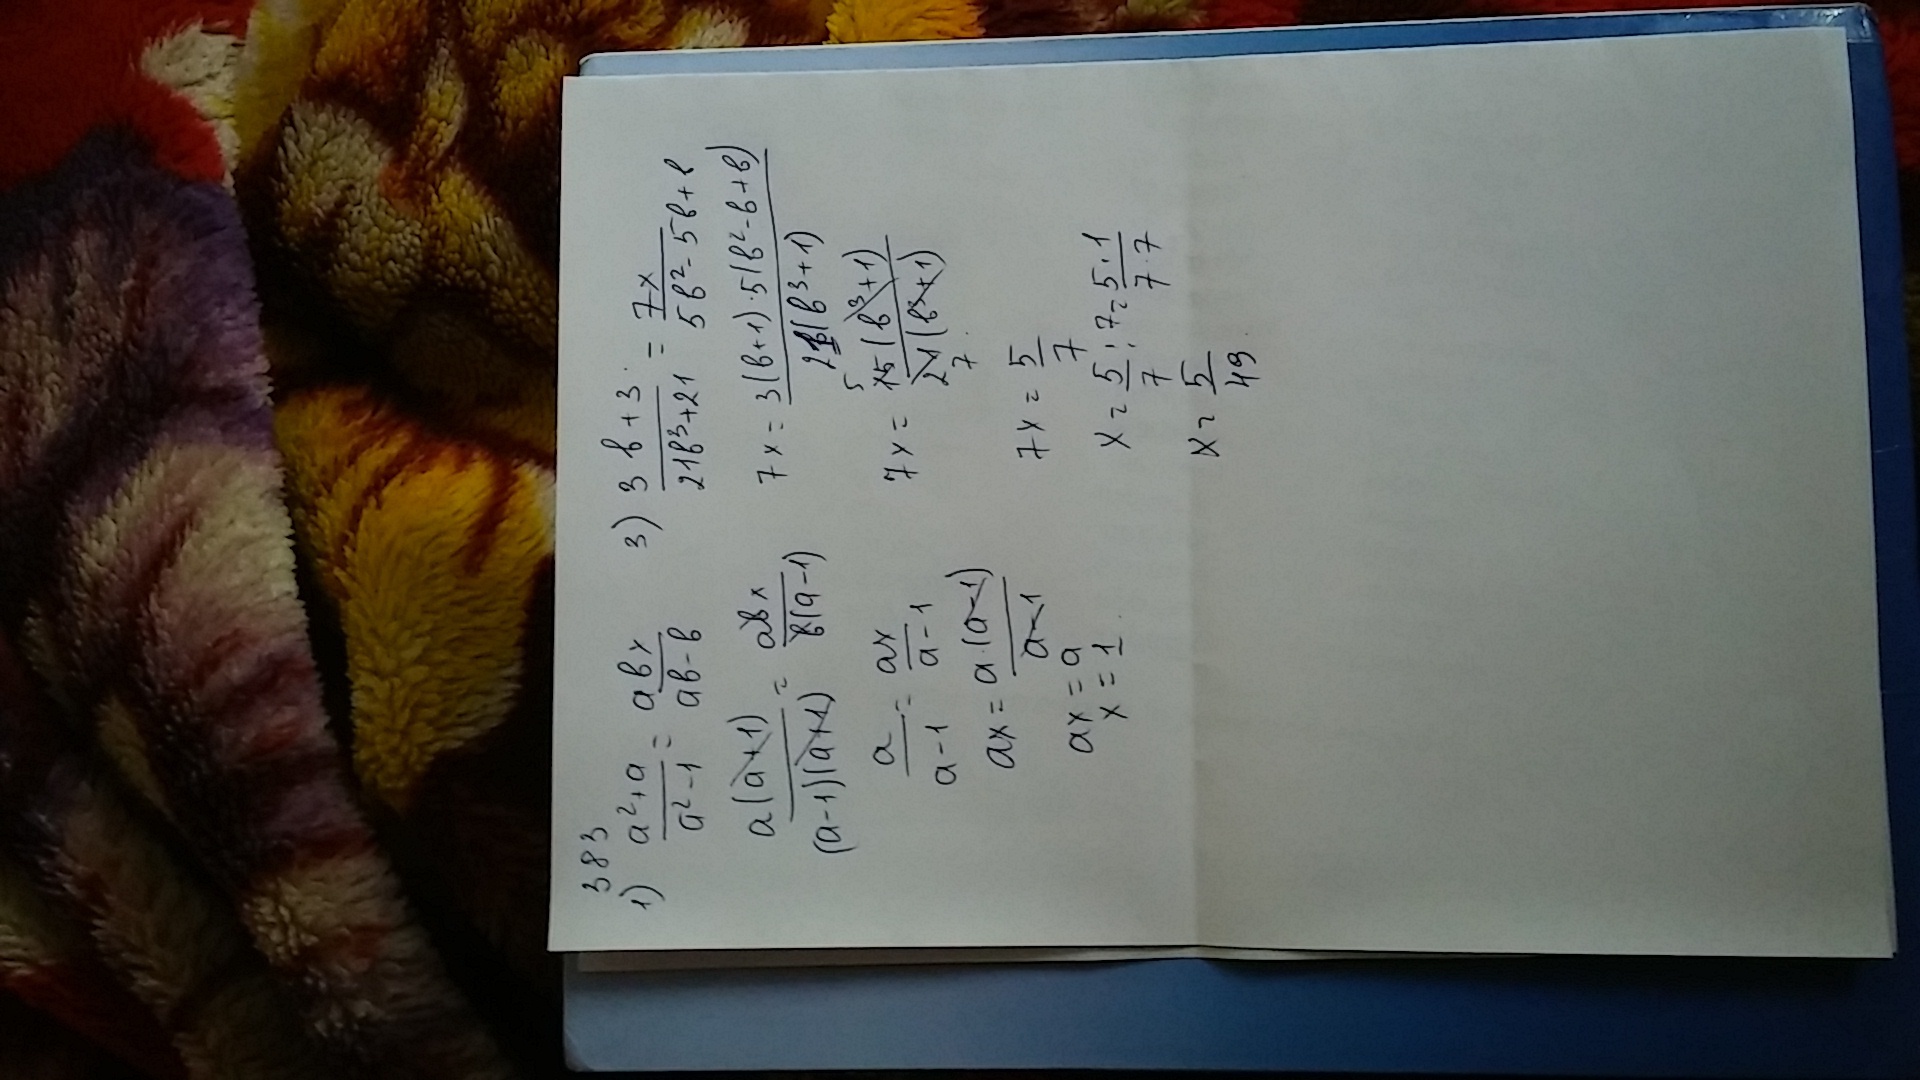 383
1) a²+a / a²-1 = aвx / aв-в
a(a+1) / (a-1)(a+1) = aвx / в(a-1)
a / a-1 = ax / a-1
ax = a·(a-1) / a-1
ax = a
x = 1.
3) 3в+3 / 21в³+21 = 7x / 5в²-5в+в
7x = 3(в+1)·5(в²-в+в) / 21(в³+1)
7x = 5 15(в³+1) / 21(в³+1) 7
7x = 5 / 7
x = 5 / 7 : 7 = 5·1 / 7·7
x = 5 / 49